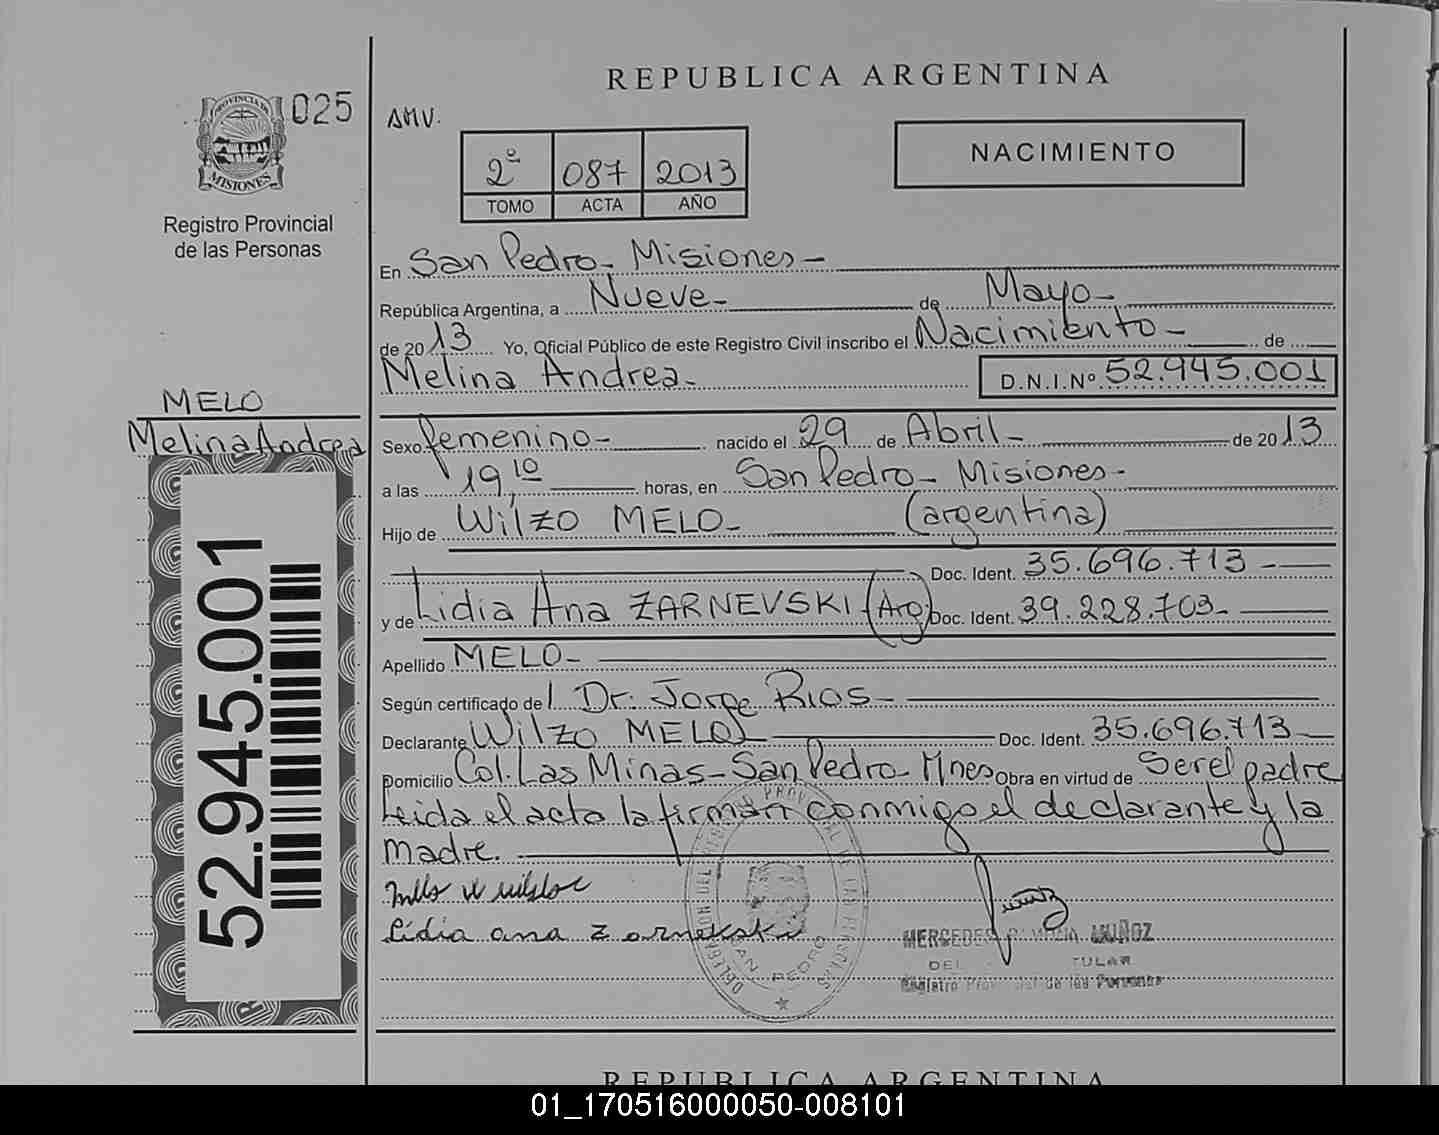 REPUBLICA ARGENTINA
025
AMV.
PROVINCIA DE
MISIONES
Registro Provincial
de las Personas
2º 087 2013
TOMO ACTA AÑO
NACIMIENTO
En San Pedro - Misiones -
República Argentina, a Nueve - de Mayo -
de 2013 Yo, Oficial Público de este Registro Civil inscribo el Nacimiento - de
Melina Andrea - D.N.I.Nº 52.945.001
MELO
Melina Andrea
52.945.001
Sexo femenino - nacido el 29 de Abril - de 2013
a las 19,10 horas, en San Pedro - Misiones -
Hijo de Wilzo MELO - (argentina)
Doc. Ident. 35.696.713 -
y de Lidia Ana ZARNEVSKI (Arg) Doc. Ident. 39.228.703 -
Apellido MELO -
Según certificado del Dr. Jorge Rios -
Declarante Wilzo MELO Doc. Ident. 35.696.713 -
Domicilio Col. Las Minas - San Pedro - Mnes Obra en virtud de Ser el padre
Leida el acta la firman conmigo el declarante y la
madre.
Lidia ana Zarnekski
DELEGACION DEL REGISTRO PROVINCIAL DE LAS PERSONAS
SAN PEDRO
MERCEDES MUÑOZ
TULAR
Registro Provincial de las Personas
REPUBLICA ARGENTINA
01_170516000050-008101